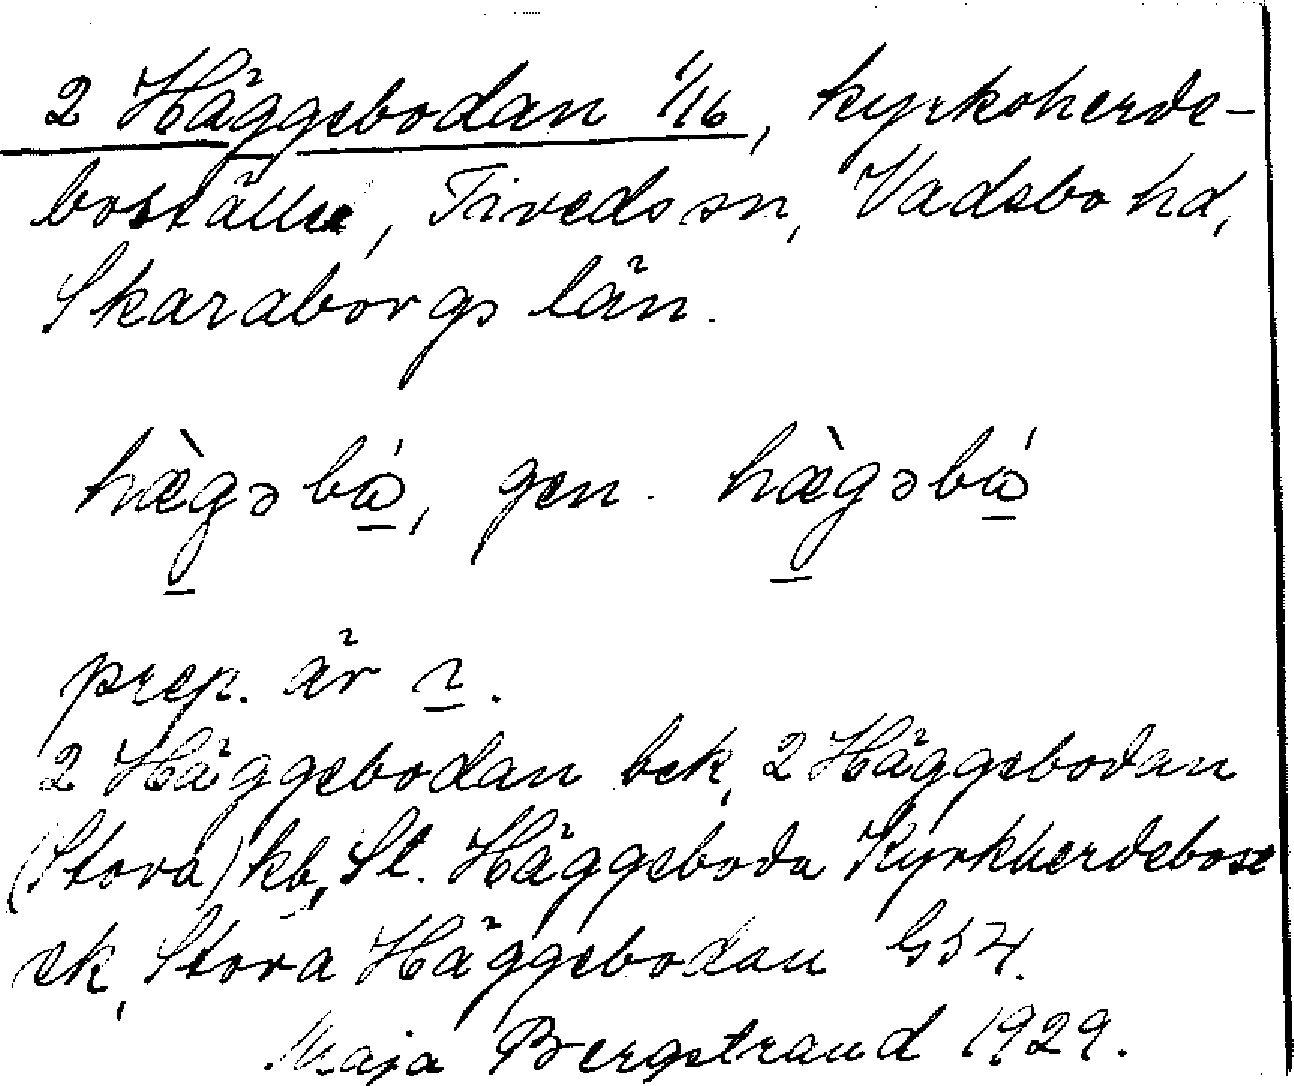 2 Häggebodan 1/16, kyrkoherde-
boställe, Tiveds sn, Vadsbo hd,
Skaraborgs län.
hæ̀gəbǻ, gen. hæ̀gəbǻs
prep. är ı.
2 Häggebodan bek, 2 Häggebodan
(Stora) kb, St. Häggeboda Kyrkherdebost
ek, Stora Häggebodan G54.
Maja Bergstrand 1929.